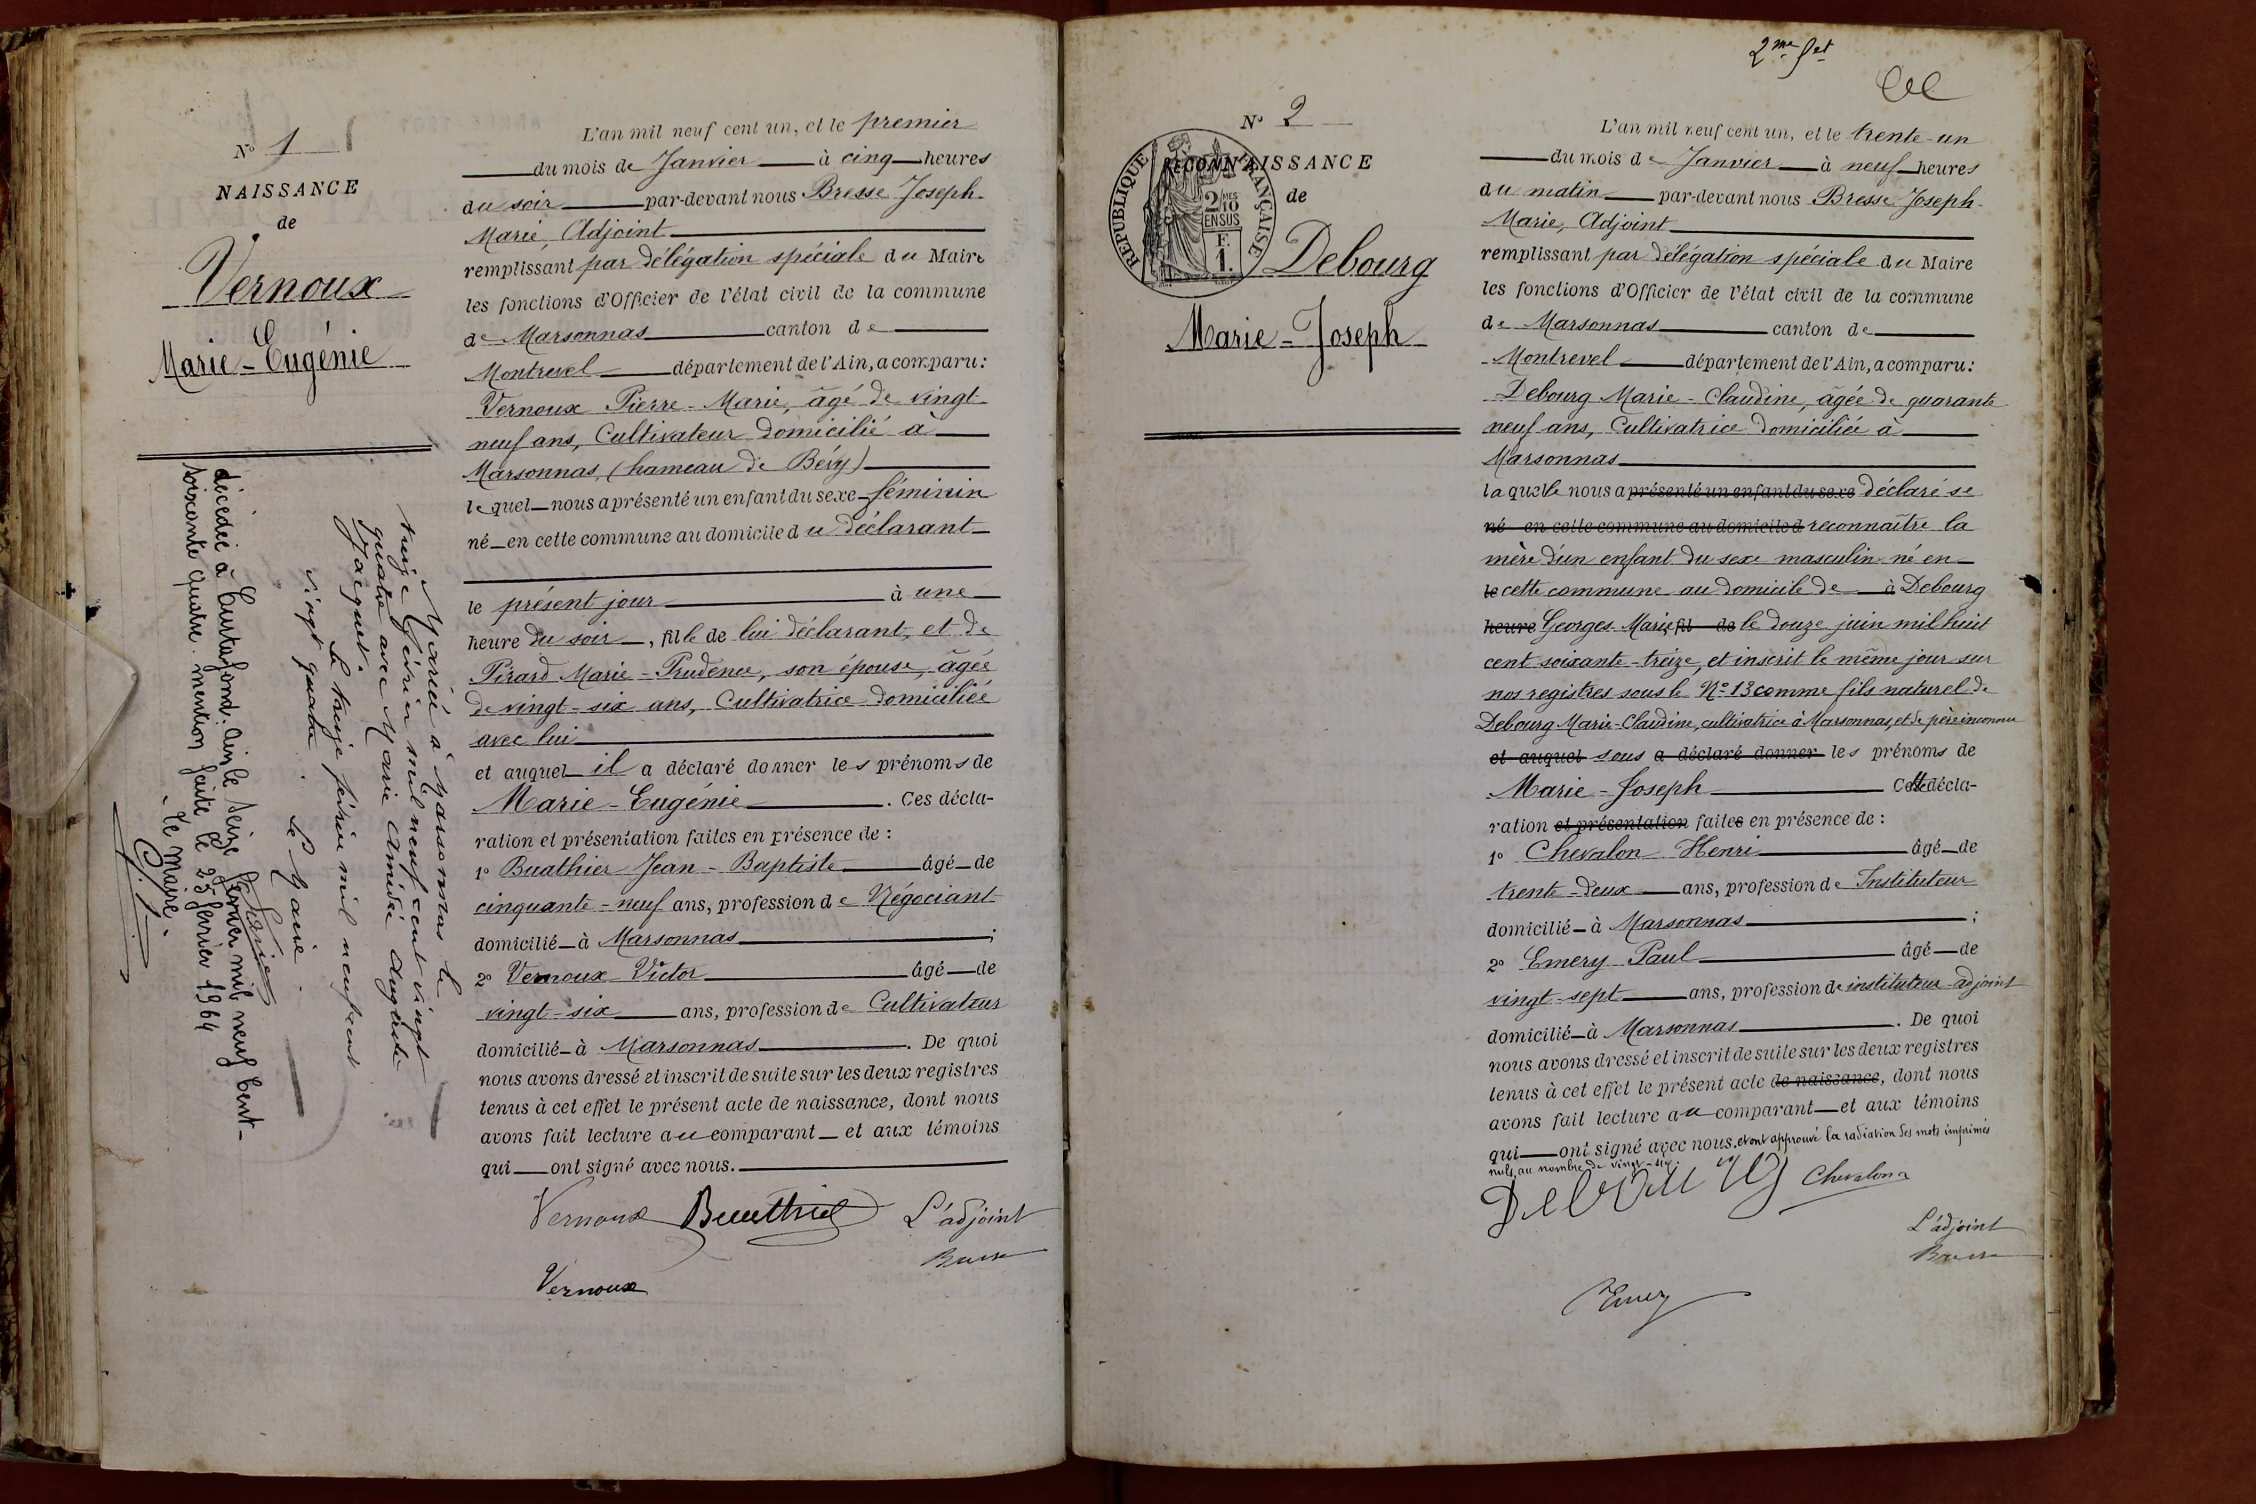 N° 1
NAISSANCE
de
Vernoux
Marie-Eugénie
L'an mil neuf cent un, et le premier
du mois de Janvier à cinq heures
du soir par-devant nous Bresse Joseph-
Marie, Adjoint
remplissant par délégation spéciale du Maire
les fonctions d'Officier de l'état civil de la commune
de Marsonnas canton de
Montrevel département de l'Ain, a comparu:
Vernoux Pierre-Marie, âgé de vingt-
neuf ans, Cultivateur domicilié à
Marsonnas, (hameau de Bévy)
lequel nous a présenté un enfant du sexe féminin
né en cette commune au domicile du déclarant
le présent jour à une
heure du soir, fille de lui déclarant, et de
Pirard Marie-Prudence, son épouse, âgée
de vingt-six ans, Cultivatrice domiciliée
avec lui
et auquel il a déclaré donner les prénoms de
Marie-Eugénie. Ces décla-
ration et présentation faites en présence de :
1° Buathier Jean-Baptiste âgé de
cinquante-neuf ans, profession de Négociant
domicilié à Marsonnas ;
2° Vernoux Victor âgé de
vingt-six ans, profession de Cultivateur
domicilié à Marsonnas. De quoi
nous avons dressé et inscrit de suite sur les deux registres
tenus à cet effet le présent acte de naissance, dont nous
avons fait lecture au comparant et aux témoins
qui ont signé avec nous.
Vernoux Buathier L'adjoint
Bresse
Vernoux
Mariée à Marsonnas le
treize février mil neuf cent vingt
quatre avec Marie Amédée Auguste
Jacquet.
le treize février mil neuf cent
vingt quatre. Le Maire.
décédée à Curtafond. Ain le seize février mil neuf cent-
soixante quatre. mention faite le 25 fevrier 1964
Le Maire.
2me fet
N° 2
RECONNAISSANCE
de
RÉPUBLIQUE FRANÇAISE
2 MES
10
EN SUS
F.
1.
Debourg
Marie-Joseph
L'an mil neuf cent un, et le trente-un
du mois de Janvier à neuf heures
du matin par-devant nous Bresse Joseph-
Marie, Adjoint
remplissant par délégation spéciale du Maire
les fonctions d'Officier de l'état civil de la commune
de Marsonnas canton de
Montrevel département de l'Ain, a comparu:
Debourg Marie-Claudine, âgée de quarante
neuf ans, Cultivatrice domiciliée à
Marsonnas
laquelle nous a présenté un enfant du sexe déclaré se
né en cette commune au domicile d reconnaître la
mère d'un enfant du sexe masculin né en
le cette commune au domicile de à Debourg
heure Georges-Marie, fil de le douze juin mil huit
cent soixante-treize, et inscrit le même jour sur
nos registres sous le N° 13 comme fils naturel de
Debourg Marie-Claudine, cultivatrice à Marsonnas, et de père inconnu
et auquel sous a déclaré donner les prénoms de
Marie-Joseph Cette décla-
ration et présentation faites en présence de :
1° Chevalon Henri âgé de
trente-deux ans, profession de Instituteur
domicilié à Marsonnas ;
2° Emery Paul âgé de
vingt-sept ans, profession de instituteur-adjoint
domicilié à Marsonnas. De quoi
nous avons dressé et inscrit de suite sur les deux registres
tenus à cet effet le présent acte de naissance, dont nous
avons fait lecture au comparant et aux témoins
qui ont signé avec nous, et ont approuvé la radiation des mots imprimés
nuls, au nombre de vingt-six.
Debourg Chevalon
L'adjoint
Bresse
Emery